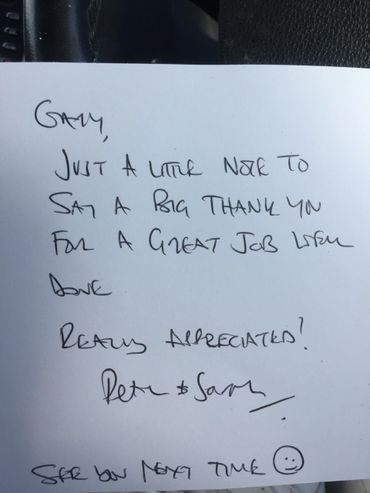 GARY,
JUST A LITTLE NOTE TO
SAY A BIG THANK YOU
FOR A GREAT JOB WELL
DONE
REALLY APPRECIATED!
Peter & Sarah
SEE YOU NEXT TIME ☺